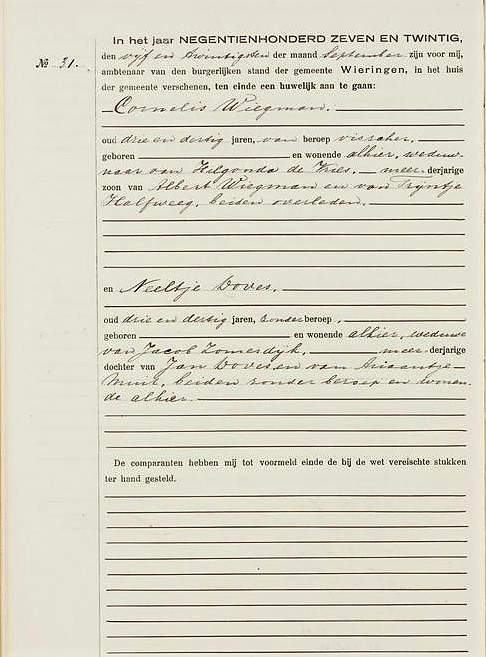 In het jaar NEGENTIENHONDERD ZEVEN EN TWINTIG,
№ 31. den vijf en twintigsten der maand September zijn voor mij,
ambtenaar van den burgerlijken stand der gemeente Wieringen, in het huis
der gemeente verschenen, ten einde een huwelijk aan te gaan:
Cornelis Wiegman.
oud drie en dertig jaren, van beroep visscher,
geboren en wonende alhier, weduw-
naar van Hilgonda de Vries, meer derjarige
zoon van Albert Wiegman en van Trijntje
Halfweeg, beiden overleden.
en Neeltje Doves.
oud drie en dertig jaren, zonder beroep,
geboren en wonende alhier, weduwe
van Jacob Zomerdijk, meer-derjarige
dochter van Jan Doves en van Ariaantje
Mint, beiden zonder beroep en wonen-
de alhier.
De comparanten hebben mij tot voormeld einde de bij de wet vereischte stukken
ter hand gesteld.